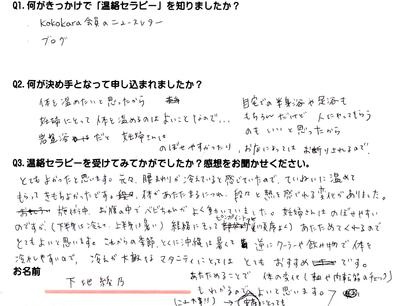 Q1. 何がきっかけで「温絡セラピー」を知りましたか？
・kokokara会員のニュースレター
・ブログ
Q2. 何が決め手となって申し込まれましたか？
体を温めたいと思ったから
妊婦にとって体を温めるのはよいことなので…
岩盤浴だと 妊婦さんは
のぼせやすかったり、お店によってはお断りされるので
自宅での半身浴や足浴も
もちろんだけど 人にやってもらう
のもいいと思ったから
Q3. 温絡セラピーを受けてみてかがでしたか？感想をお聞かせください。
とてもよかったと思います。元々、腰まわりが冷えていると感じていたので、ていねいに温めて
もらってきもちよかったです。体があたたまるにつれ、段々と熱を感じれる変化がありました。
施術中、お腹の中でベビちゃんがよく動いていました。妊婦さんはのぼせやすい
のですが、(下半身は冷えて、上半身は暑い) 経絡にそって あたためてくれるので
とてもよいと思います。これからの季節、とくに沖縄は暑くても逆にクーラーや飲み物で体を
冷やしやすいので、冷えが大敵なマタニティにとっては とてもおすすめです。
お名前
下地 絵乃
あたためることで 体の変化
もわかるのでよいと思います。